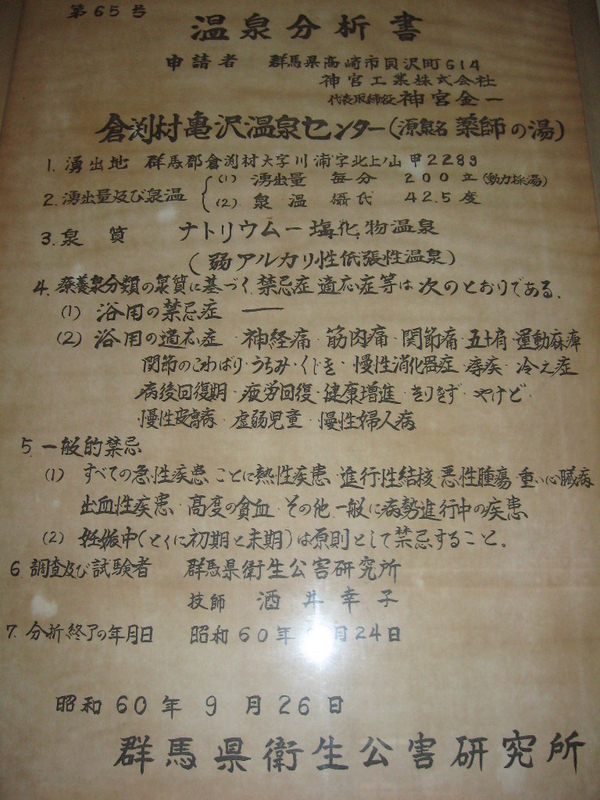 第65号
温泉分析書
申請者 群馬県高崎市貝沢町614
神宮工業株式会社
代表取締役 神宮金一
倉渕村亀沢温泉センター(源泉名 薬師の湯)
1. 湧出地 群馬郡倉渕村大字川浦字北上ノ山甲2289
2. 湧出量及び泉温 (1) 湧出量 毎分 200立(動力揚湯)
(2) 泉温 摂氏 42.5度
3. 泉質 ナトリウムー塩化物温泉
(弱アルカリ性低張性温泉)
4. 療養泉分類の泉質に基づく禁忌症 適応症等は次のとおりである.
(1) 浴用の禁忌症 ——
(2) 浴用の適応症 神経痛・筋肉痛・関節痛・五十肩・運動麻痺
関節のこわばり・うちみ・くじき・慢性消化器症・痔疾・冷え症
病後回復期・疲労回復・健康増進・きりきず・やけど・
慢性皮膚病・虚弱児童・慢性婦人病
5. 一般的禁忌
(1) すべての急性疾患 ことに熱性疾患 進行性結核 悪性腫瘍 重い心臓病
出血性疾患 高度の貧血 その他一般に病勢進行中の疾患
(2) 妊娠中(とくに初期と末期)は原則として禁忌すること.
6. 調査及び試験者 群馬県衛生公害研究所
技師 酒井幸子
7. 分析終了の年月日 昭和60年 月24日
昭和60年9月26日
群馬県衛生公害研究所